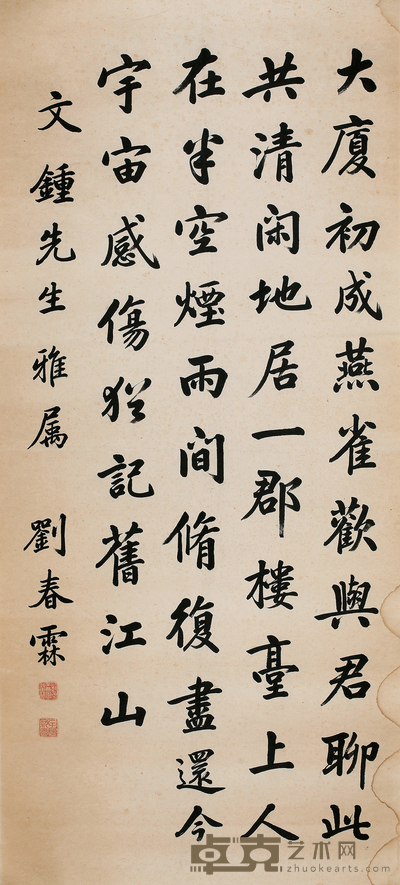 大廈初成燕雀歡與君聊此
共清閑地居一郡樓臺上人
在半空煙雨間脩復盡還今
宇宙感傷猶記舊江山
文鍾先生雅属 劉春霖
卓克艺术网
zhuokearts.com